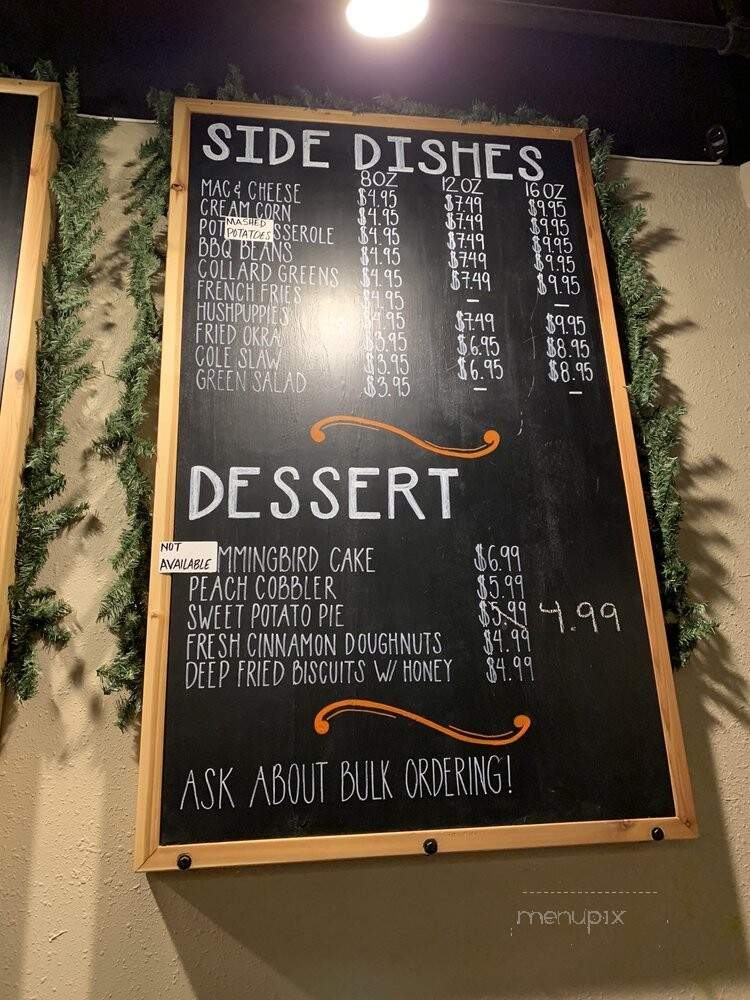 SIDE DISHES
8OZ 12 OZ 16 OZ
MAC & CHEESE $4.95 $7.49 $9.95
CREAM CORN $4.95 $7.49 $9.95
POT MASHED POTATOES SSEROLE $4.95 $7.49 $9.95
BBQ BEANS $4.95 $7.49 $9.95
COLLARD GREENS $4.95 $7.49 $9.95
FRENCH FRIES $4.95 — —
HUSHPUPPIES $4.95 $7.49 $9.95
FRIED OKRA $3.95 $6.95 $8.95
COLE SLAW $3.95 $6.95 $8.95
GREEN SALAD $3.95 — —
DESSERT
NOT AVAILABLE MMINGBIRD CAKE $6.99
PEACH COBBLER $5.99
SWEET POTATO PIE $5.99 4.99
FRESH CINNAMON DOUGHNUTS $4.99
DEEP FRIED BISCUITS W/ HONEY $4.99
ASK ABOUT BULK ORDERING!
menupix